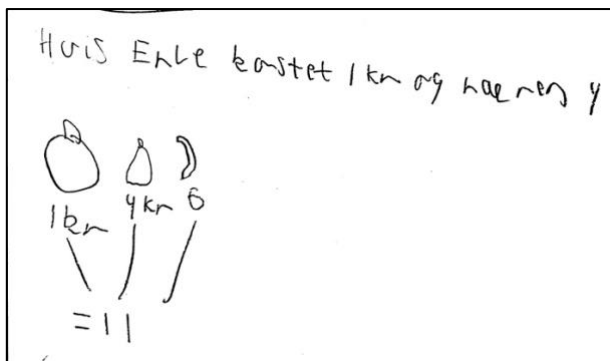 Hvis Enle kostet 1 kr og næren 4
1kr 4kr 6
=11